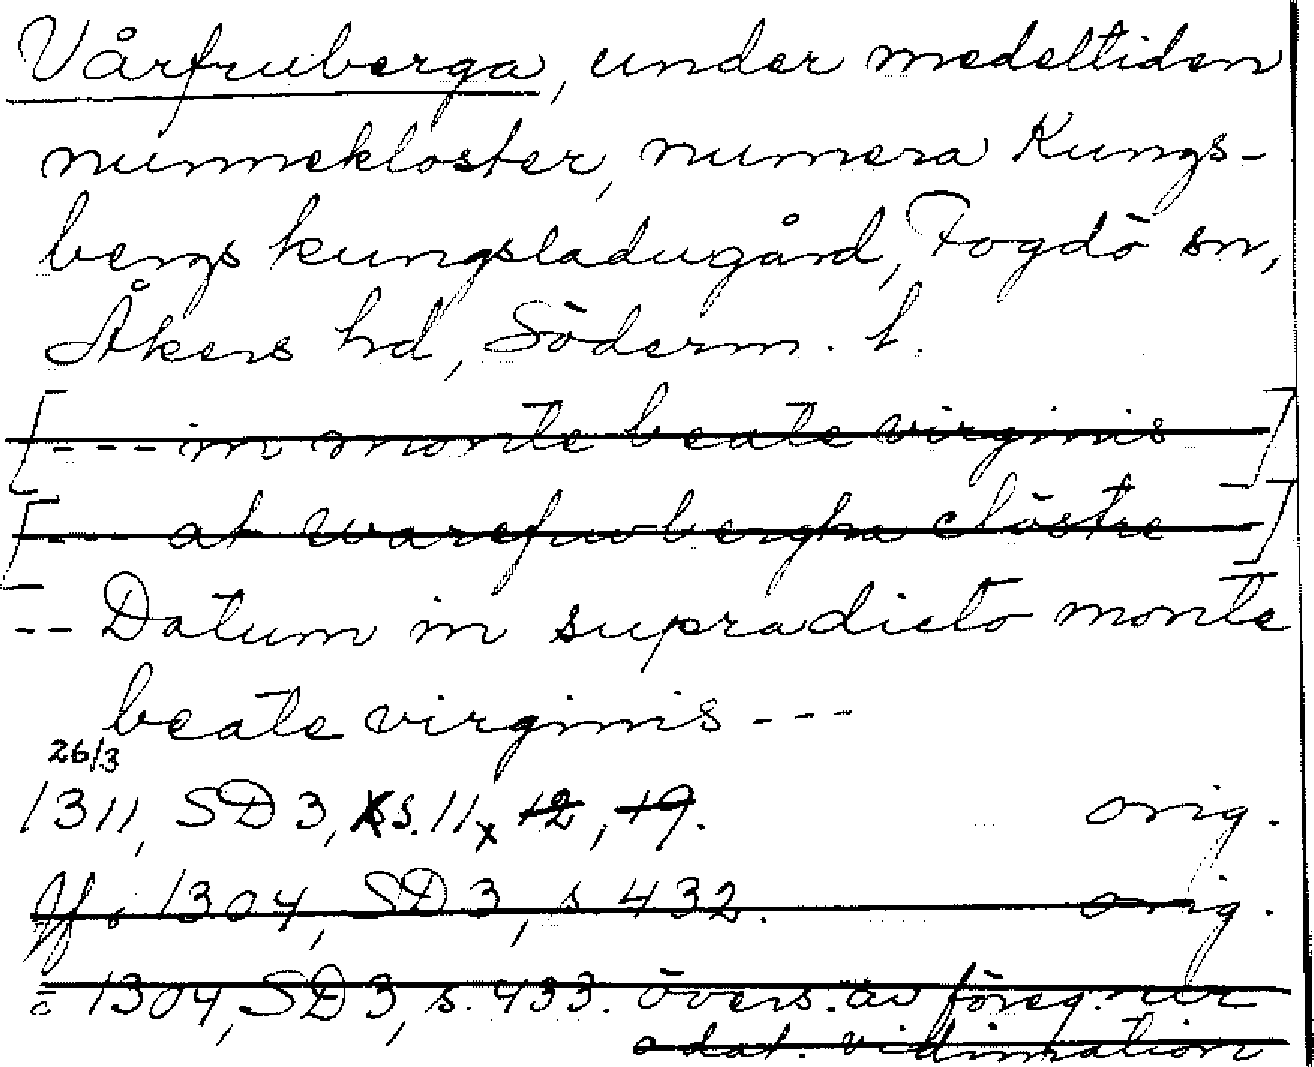 Vårfruberga, under medeltiden
nunnekloster, numera Kungs-
bergs kungsladugård, Fogdö sn,
Åkers hd, Söderm. l.
[--- in monte beate virginis ]
[--- at warefrwbergha clöstre ]
-- Datum in supradicto monte
beate virginis ---
26/3
1311, SD 3, s. 11, 12, 19. orig.
Jf ö 1304, SD 3, s. 432. orig.
ö 1304, SD 3, s. 433. övers. av föreg. ur
odat. vidimation